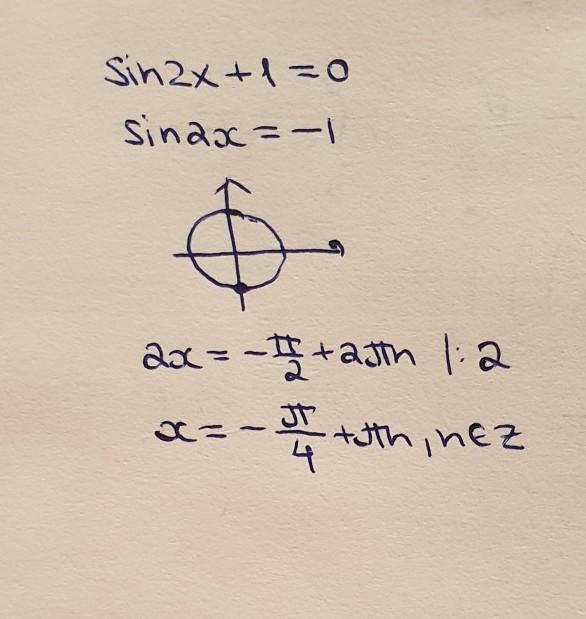 sin2x+1=0
sin2x=-1
2x=-π/2+2πn |:2
x=-π/4+πn, n∈Z